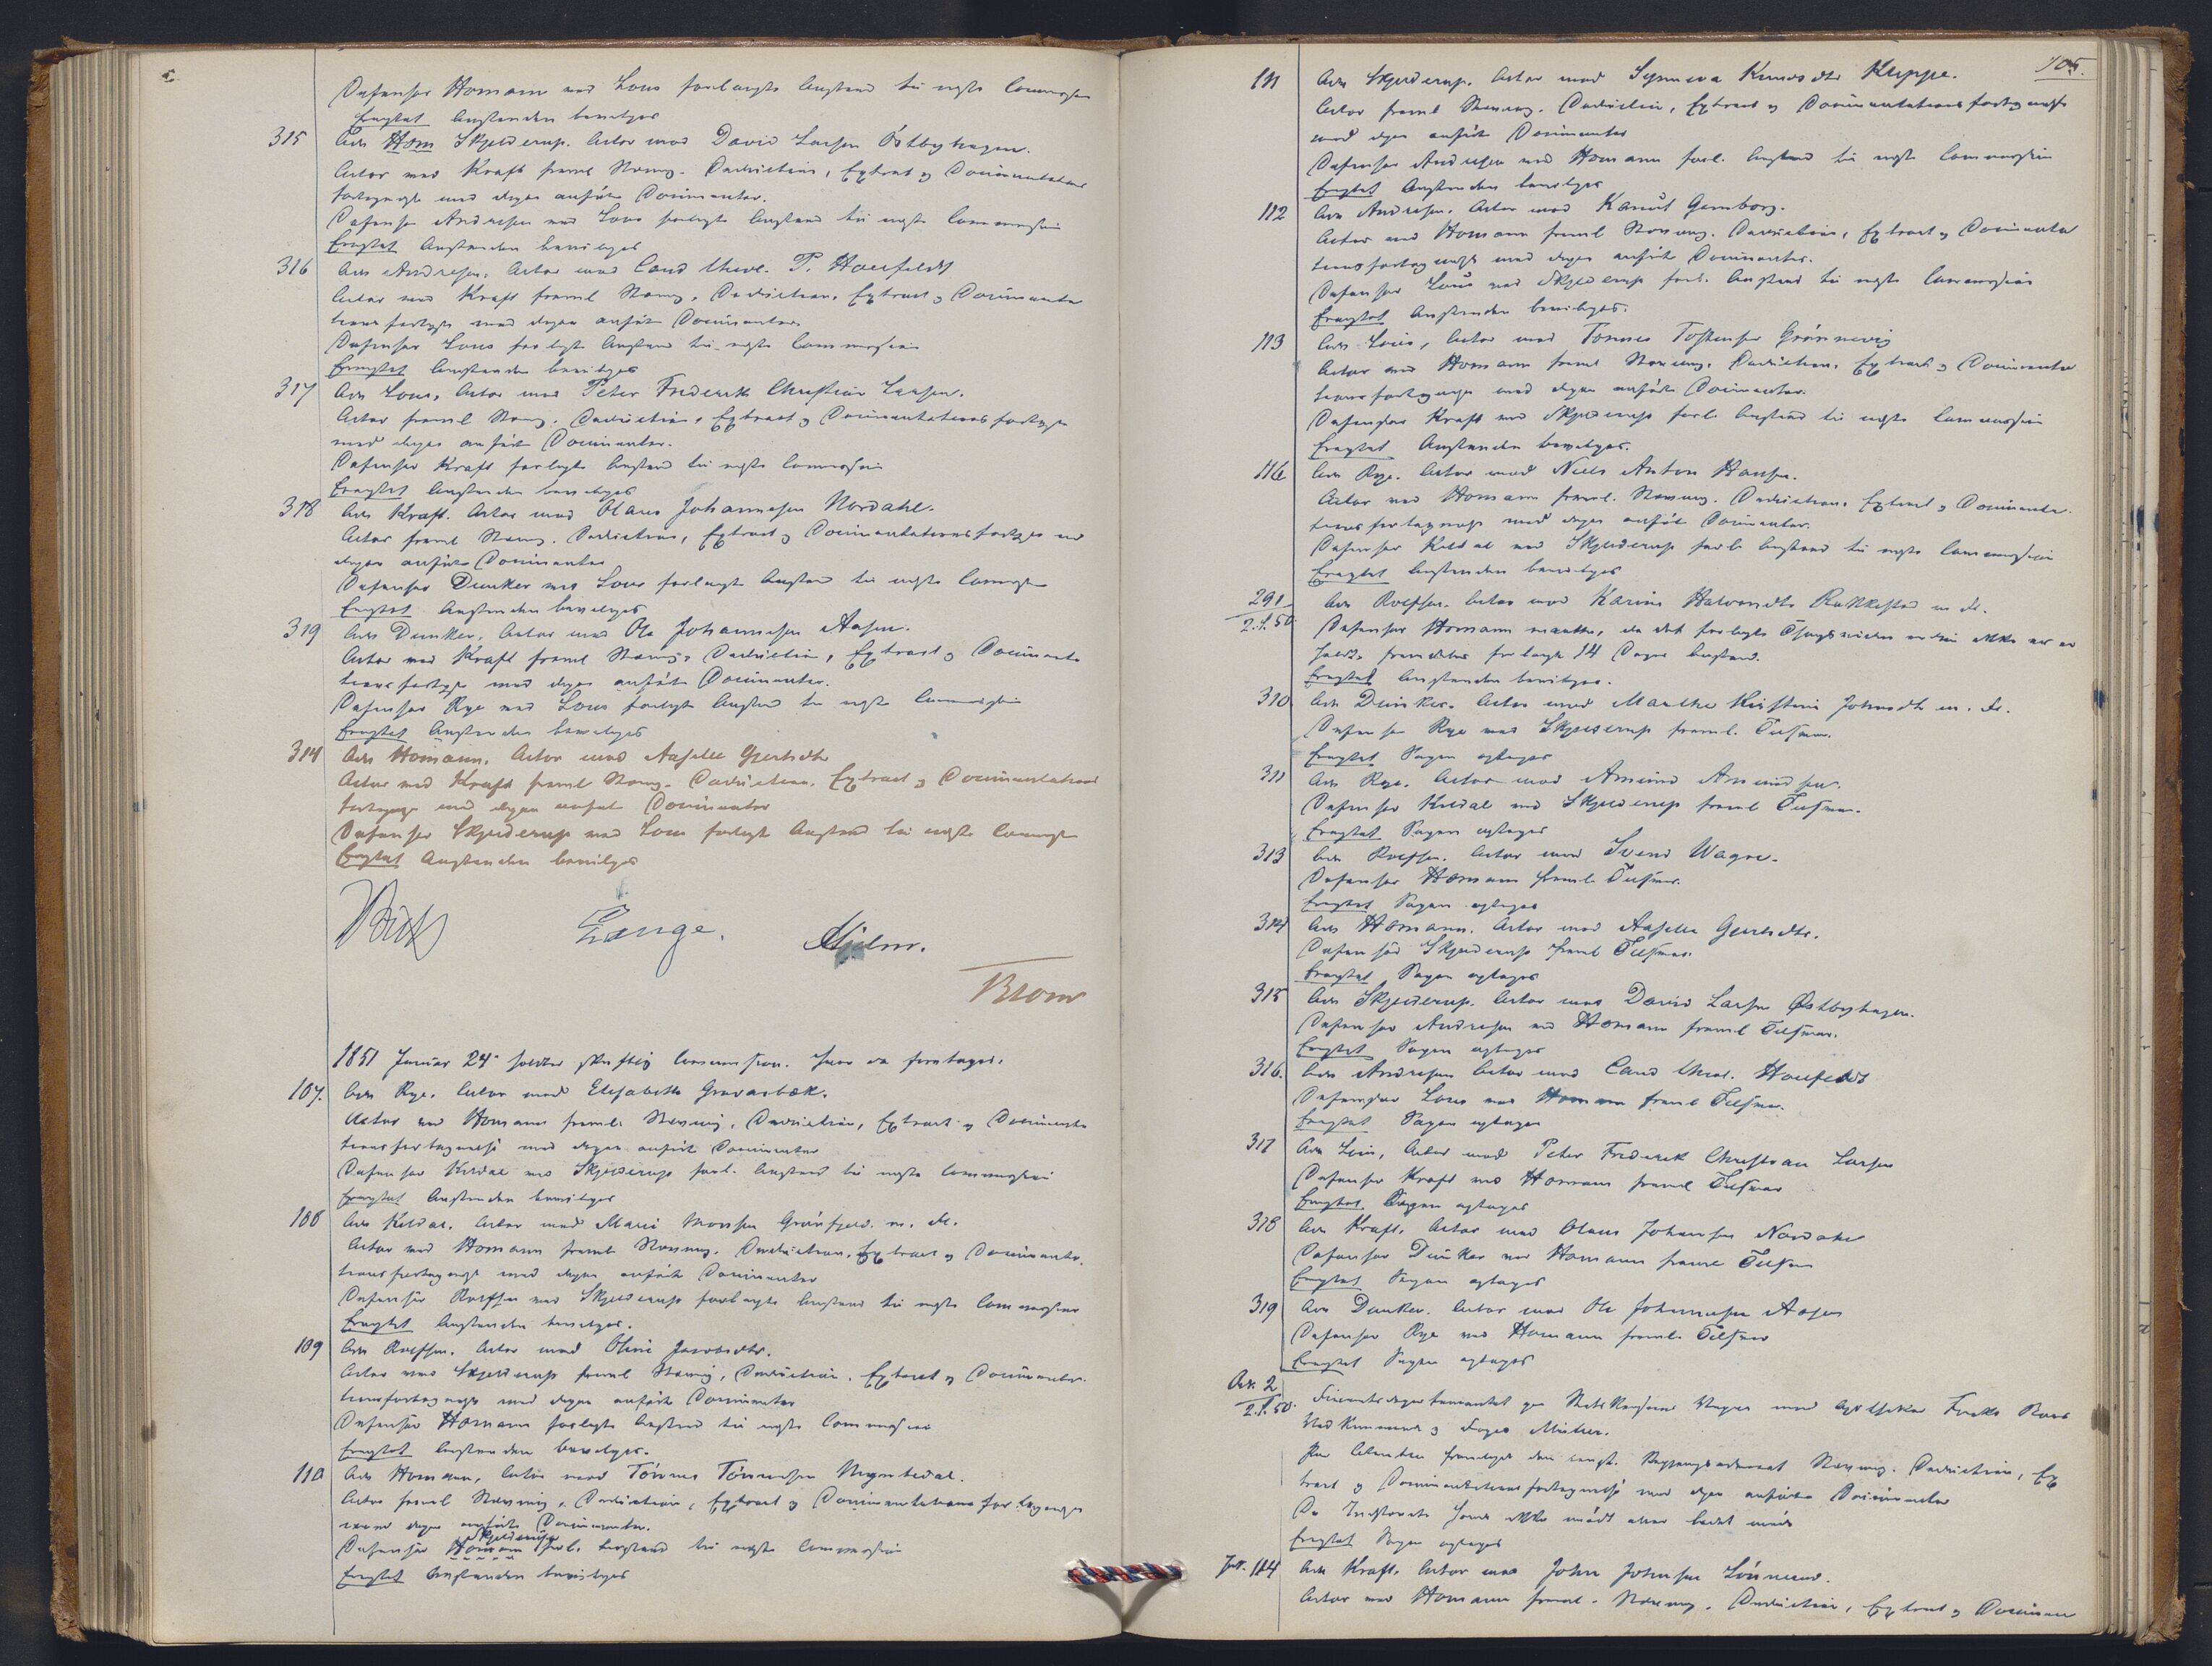 Defensor Homann ved Lous forlangte Anstand til næste Commission
Eragtet Anstanden bevilges
315 Adv Hom Skjelderup. Actor mod David Larsen Østbyhagen.
Actor ved Kraft freml Stevng. Deduction, Extract og Documentations
fortegnelse med deri anførte Documenter.
Defensor Andresen ved Lous forlangte Anstand til næste Commission
Eragtet Anstanden bevilges
316 Adv Andresen. Actor mod Cand theol. P. Houfeldt
Actor ved Kraft freml Stevng, Deduction, Extract og Documenta
tions fortegn med deri anførte Documenter
Defensor Lous forlangte Anstand til næste Commission
Eragtet Anstanden bevilges
317 Adv Lous. Actor mod Peter Frederik Christian Larsen.
Actor freml Stevng, Deduction, Extract og Documentations fortegn
med deri anførte Documenter.
Defensor Kraft forlangte Anstand til næste Commission
Eragtet Anstanden bevilges
318 Adv Kraft. Actor mod Olaus Johannesen Nordahl.
Actor freml Stevng. Deduction, Extract og Documentations fortegn med
deri anførte Documenter
Defensor Dunker ved Lous forlangte Anstand til næste Commission
Eragtet Anstanden bevilges
319 Adv Dunker. Actor mod Ole Johannesen Aasen.
Actor ved Kraft freml Stevng, Deduction, Extract og Documenta
tions fortegn med deri anførte Documenter.
Defensor Rye ved Lous forlangte Anstand til næste Commission
Eragtet Anstanden bevilges
314 Adv Homann. Actor mod Aaselle Gjertsdtr
Actor ved Kraft freml Stevng. Deduction, Extract og Documentations
fortegn med deri anførte Documenter
Defensor Skjelderup ved Lous forlangte Anstand til næste Commission
Eragtet Anstanden bevilges
Lange. Hjelm.
1851 Januar 24 holdtes skriftlig Commission. Hvor da foretages:
107. Adv Rye. Actor mod Elisabeth Gravarbæk.
Actor ved Homann freml. Stevning, Deduction, Extract og Documenta
tions fortegnelse med deri anførte Documenter
Defensor Kildal ved Skjelderup forl. Anstand til næste Commission
Eragtet Anstanden bevilges
108 Adv Kildal. Actor mod Marie Monsen Grønfjeld m. fl.
Actor ved Homann freml Stevng. Deduction, Extract og Documenta
tions fortegnelse med deri anførte Documenter
Defensor Rolfsen ved Skjelderup forlangte Anstand til næste Commission
Eragtet Anstanden bevilges.
109 Adv Rolfsen. Actor mod Oline Jacobsdtr.
Actor ved Skjelderup freml Stevng, Deduction, Extract og Documenta
tionsfortegnelse med deri anførte Documenter
Defensor Homann forlangte Anstand til næste Commission
Eragtet Anstanden bevilges.
110 Adv Homann, Actor mod Tønnes Tønnesen
Actor freml Stevning, Deduction, Extract og Documentations fortegnelse
med deri anførte Documenter.
Skjelderup
Defensor Homann forl. Anstand til næste Commission
Eragtet Anstanden bevilges
105.
111 Adv Skjelderup. Actor mod Synneva Knudsdtr Kleppe.
Actor freml Stevng. Deduction, Extract og Documentations fortegnelse
med deri anførte Documenter
Defensor Andresen ved Homann forl. Anstand til næste Commission
Eragtet Anstanden bevilges
112 Adv Andresen. Actor mod Kanut Gamborg.
Actor ved Homann freml Stevng. Deduction, Extract og Documenta
tionsfortegnelse med deri anførte Documenter.
Defensor Lous ved Skjelderup forl. Anstand til næste Commission
Eragtet Anstanden bevilges.
113 Adv Lous, Actor mod Tønnes Tostensen Grønnevig
Actor ved Homann freml Stevng. Deduction, Extract og Documenta
tionsfortegnelse med deri anførte Documenter.
Defensor Kraft ved Skjelderup forl. Anstand til næste Commission
Eragtet Anstanden bevilges.
116 Adv Rye. Actor mod Niels Anton Hansen.
Actor ved Homann freml. Stevng. Deduction, Extract og Documenta
tions fortegnelse med deri anførte Documenter.
Defensor Kildal ved Skjelderup forl. Anstand til næste Commission
Eragtet Anstanden bevilges
291
2.S.50. Adv Rolfsen. Actor mod Karine Halvorsdtr m fl.
Defensor Homann mødte, da det forlangte endnu ikke er
fremdeles forlangte 14 Dages Anstand.
Eragtet Anstanden bevilges.
310 Adv Dunker. Actor mod Marthe Kirstine Johnsdtr m. fl.
Defensor Rye ved Skjelderup freml. Tilsvar.
Eragtet Sagen optages
311 Adv Rye. Actor mod Amund Amundsen.
Defensor Kildal ved Skjelderup freml Tilsvar.
Eragtet Sagen optages
313 Adv Rolfsen. Actor mod Svend Wagne.
Defensor Homann freml. Tilsvar.
Eragtet Sagen optages
314 Adv Homann. Actor mod Aaselle Gjertsdtr.
Defensor Skjelderup freml Tilsvar.
Eragtet Sagen optages
315 Adv Skjelderup. Actor mod David Larsen Østbyhagen.
Defensor Andresen ved Homann freml Tilsvar.
Eragtet Sagen optages
316. Adv Andresen Actor mod Cand theol. Houfeldt
Defensor Lous ved Homann freml Tilsvar.
Eragtet Sagen optages
317 Adv Lous, Actor mod Peter Frederik Christian Larsen
Defensor Kraft ved Homann freml Tilsvar
Eragtet Sagen optages
318 Adv Kraft. Actor mod Olaus Johannesen Nordahl
Defensor Dunker ved Homann freml Tilsvar
Eragtet Sagen optages
319 Adv Dunker. Actor mod Ole Johannesen Aasen
Defensor Rye ved Homann freml. Tilsvar
Eragtet Sagen optages
2
2.S.50. Finantsdepartementet paa Statskassens Vegne mod Apotheker
Citanten fremlagde den Stevng. Deduction, Ex
tract og Documentationsfortegnelse med deri anførte Documenter
De Indstevnte havde ikke mødt eller ladet møde
Eragtet Sagen optages
114 Adv Kraft. Actor mod John Johnsen
Actor ved Homann freml. Stevng. Deduction, Extract og Documen